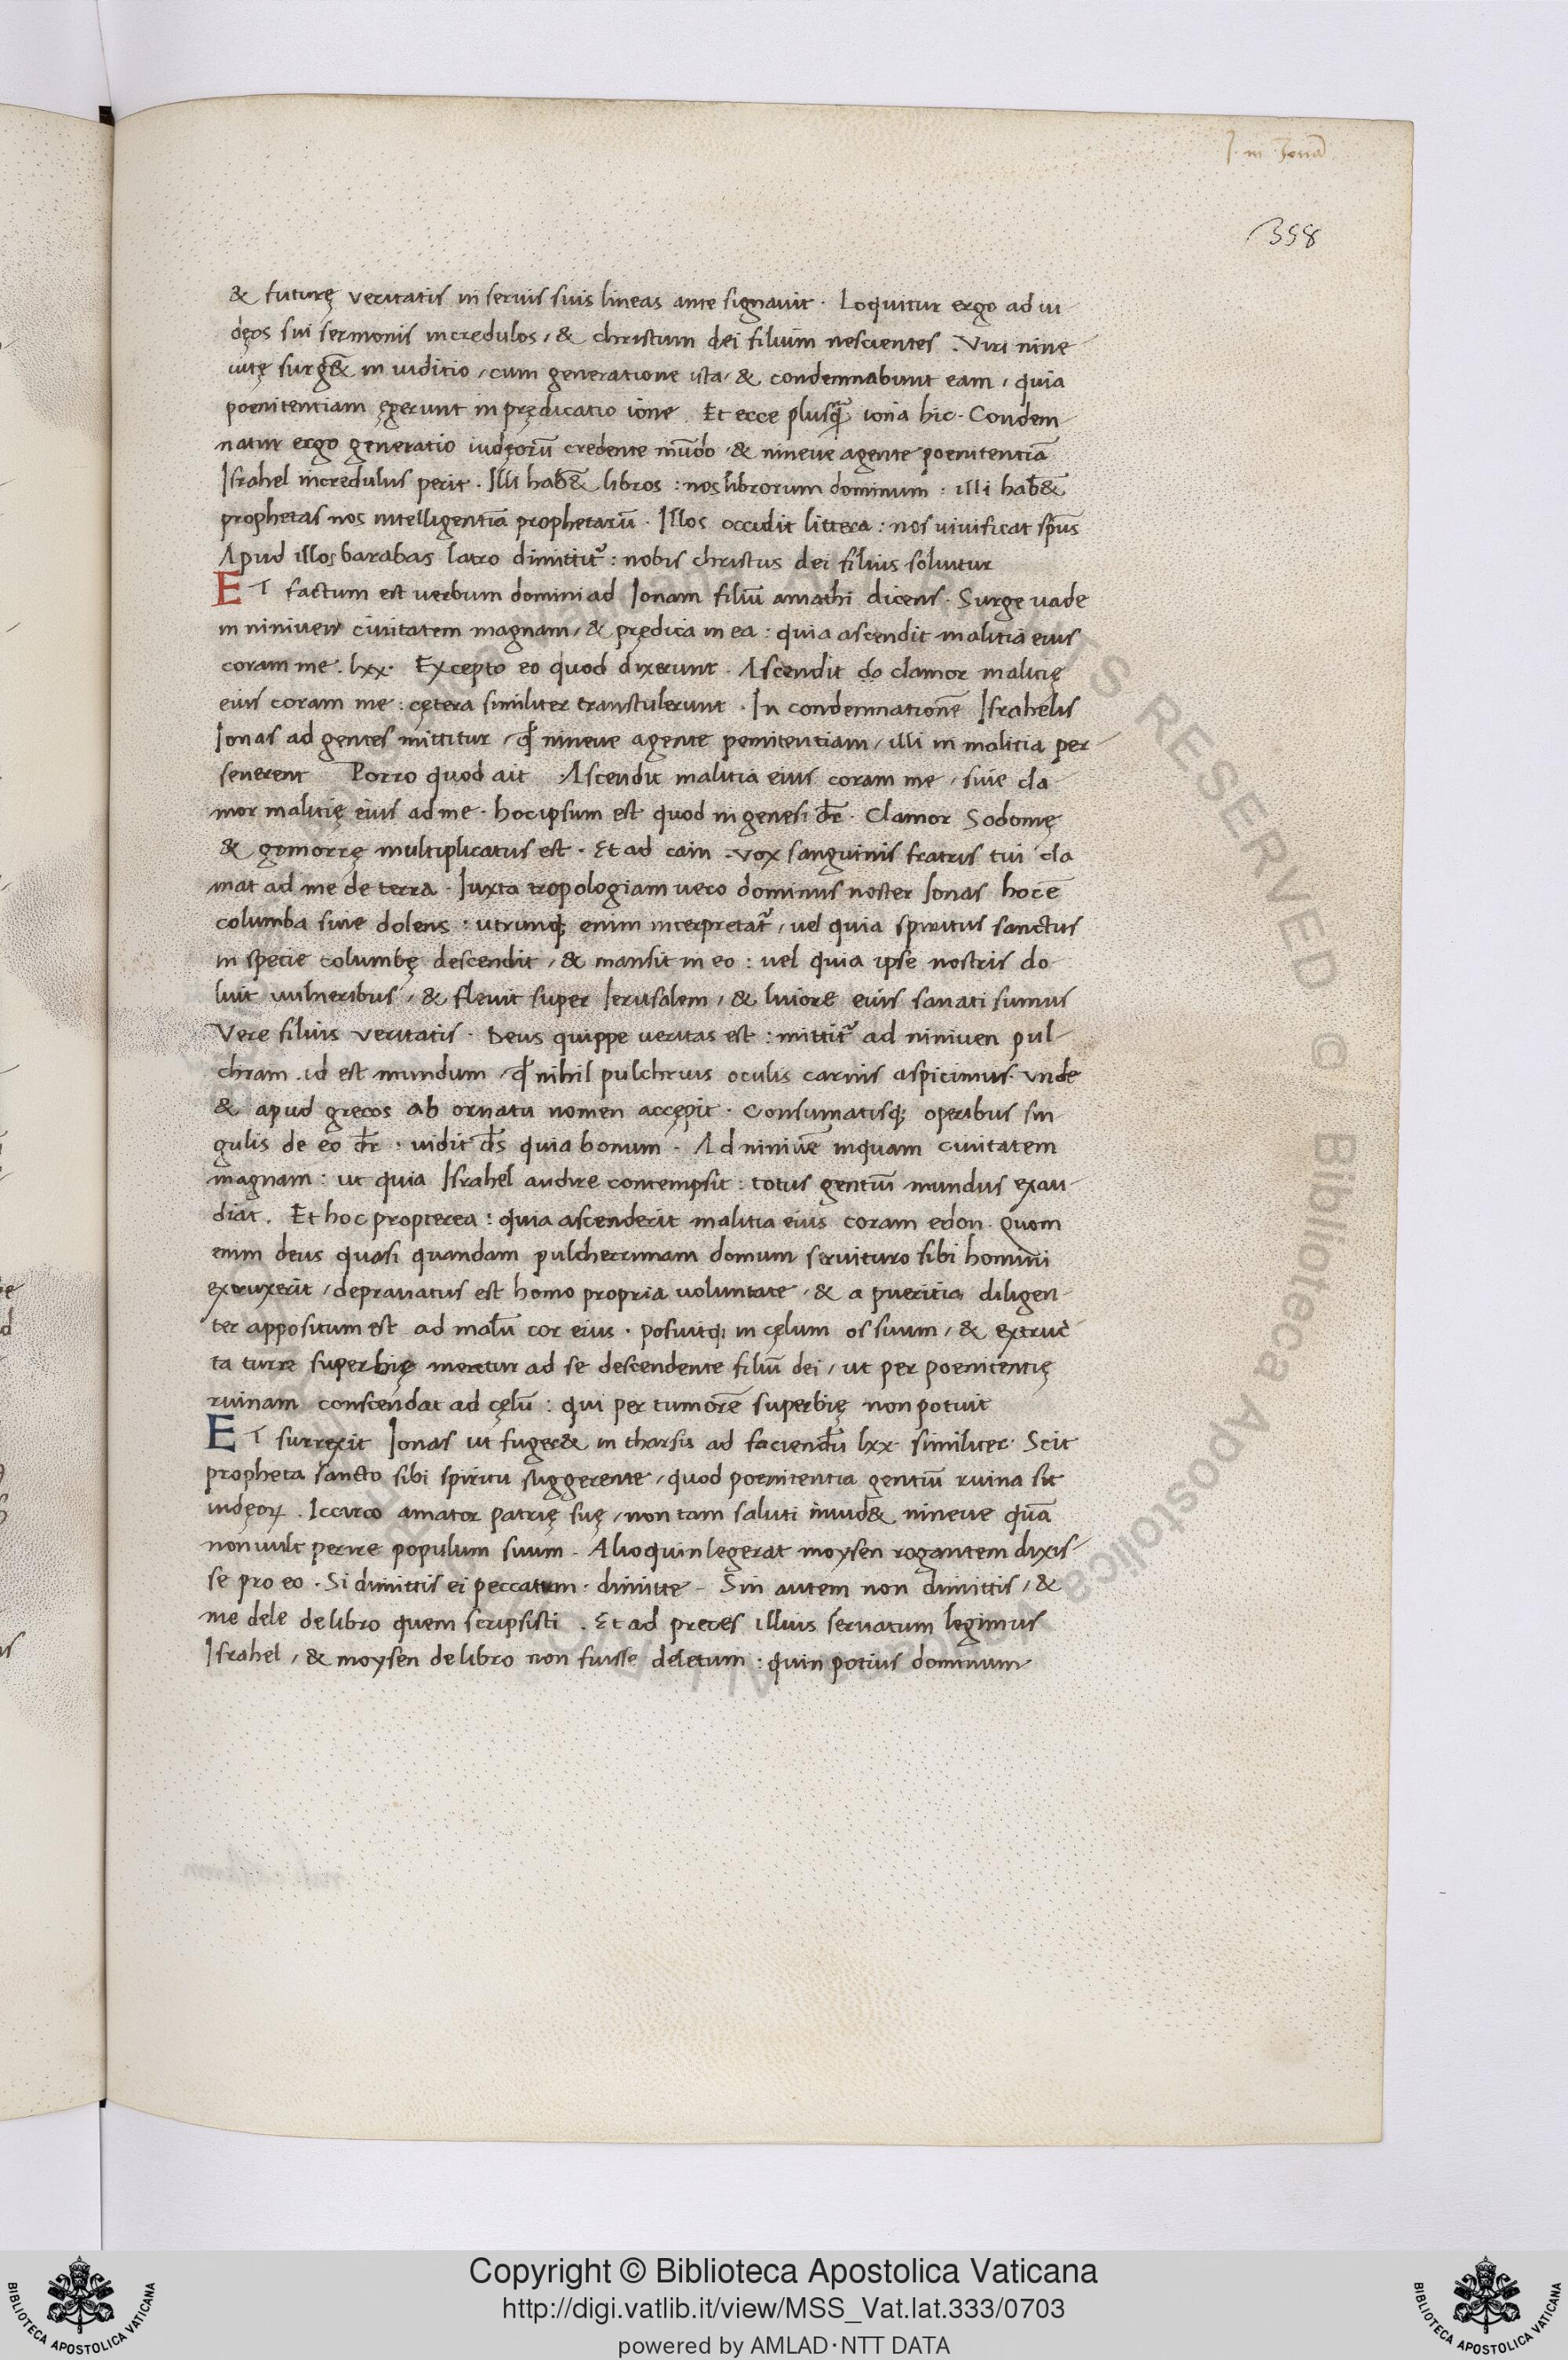 I. in Ionā
358
& futurę veritatis in seruis suis lineas ante signauit · Loquitur ergo ad iu-
dęos sui sermonis incredulos, & christum dei filium nescientes . Viri nine-
uitę surg& in iuditio, cum generatione ista, & condemnabunt eam, quia
poenitentiam ęgerunt in prędicatio ione . Et ecce plusq̄ iona hic · Condem-
natur ergo generatio iudęorū credente mūdo, & nineue agente poenitentiā
Israhel incredulus perit · Illi hab& libros : nos librorum dominum : illi hab&
prophetas nos intelligentiā prophetarū · Illos occidit littera : nos viuificat sp̄us
Apud illos barabas latro dimittit᷑ : nobis christus dei filius soluitur
ET factum est uerbum domini ad Ionam filiū amathi dicens · Surge uade
in niniuen ciuitatem magnam, & prędica in ea : quia ascendit malitia eius
coram me . lxx · Excepto eo quod dixerunt . Ascendit do clamor malitię
eius coram me : cętera similiter transtulerunt · In condemnationē Israhelis
Ionas ad gentes mittitur, qđ nineue agente penitentiam, illi in malitia per-
seuerent Porro quod ait · Ascendit malitia eius coram me, siue cla
mor malitię eius ad me · hoc ipsum est quod in genesi dr̄ · Clamor Sodomę
& gomorrę multiplicatus est · Et ad cain . vox sanguinis fratris tui cla
mat ad me de terra · Iuxta tropologiam uero dominus noster Ionas hoc ē
columba siue dolens : utrunq; enim interpretat᷑, uel quia spiritus sanctus
in specie columbę descendit, & mansit in eo : uel quia ipse nostris do-
luit uulneribus, & fleuit super Ierusalem, & liuore eius sanati sumus
Vere filius veritatis · Deus quippe ueritas est : mittit᷑ ad niniuen pul-
chram . id est mundum, qđ nihil pulchrius oculis carnis aspicimus · vnde
& apud grecos ab ornatu nomen accępit · Consumatisq; operibus sin
gulis de eo dr̄ : uidit d̄s quia bonum · Ad niniuē inquam ciuitatem
magnam : ut quia Israhel audire contempsit : totus gentiū mundus exau-
diat . Et hoc propterea : quia ascenderit malitia eius coram edon · Quom
enim deus quasi quandam pulcherrimam domum seruituro sibi homini
extruxerit, deprauatus est homo propria uoluntate, & a pueritia diligen-
ter appositum est ad malū cor eius · posuitq; in cęlum os suum, & extruc-
ta turre superbię meretur ad se descendente filiū dei, ut per poenitentię
ruinam conscendat ad cęlū : qui per tumorē superbię non potuit
ET surrexit Ionas ut fuger& in tharsis ad faciendū lxx · similiter · Scit
propheta sancto sibi spiritu suggerente, quod poenitentia gentiū ruina sit
iudęoꝝ . Iccirco amator patrię suę, non tam saluti inuid& nineue quā
non uult perire populum suum · Alioquin legerat moysen rogantem dixis-
se pro eo · Si dimittis ei peccatum · dimitte - Sin autem non dimittis, &
me dele de libro quem scripsisti . Et ad preces illius seruatum legimus
Israhel, & moysen de libro non fuisse deletum : quin potius dominum
Copyright © Biblioteca Apostolica Vaticana
http://digi.vatlib.it/view/MSS_Vat.lat.333/0703
powered by AMLAD·NTT DATA
BIBLIOTECA APOSTOLICA VATICANA
BIBLIOTECA APOSTOLICA VATICANA